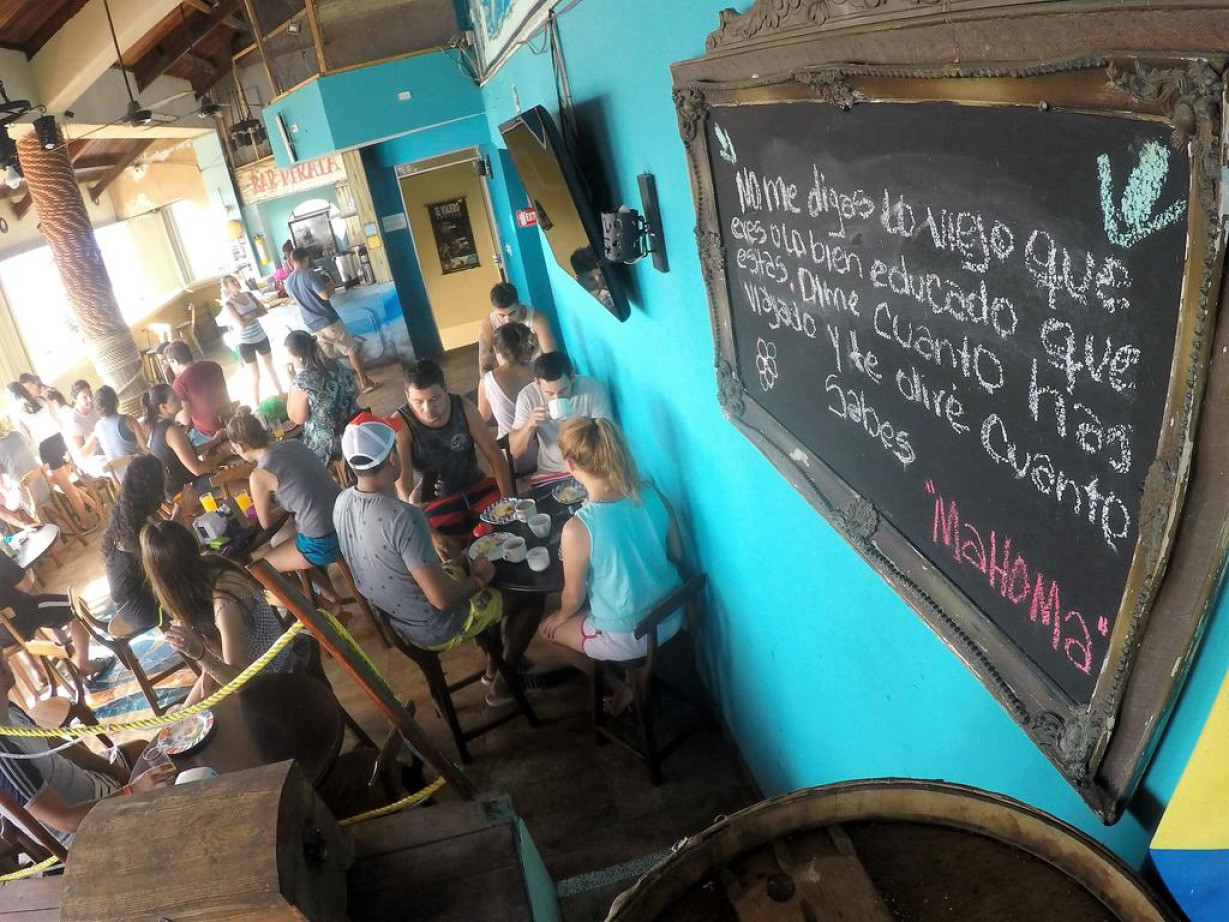 BAR PIRATA
EL VIAJERO
EXIT
No me digas lo viejo que
eres o lo bien educado que
estas. Dime cuanto has
viajado y te diré cuanto
Sabes
"MaHoMa"